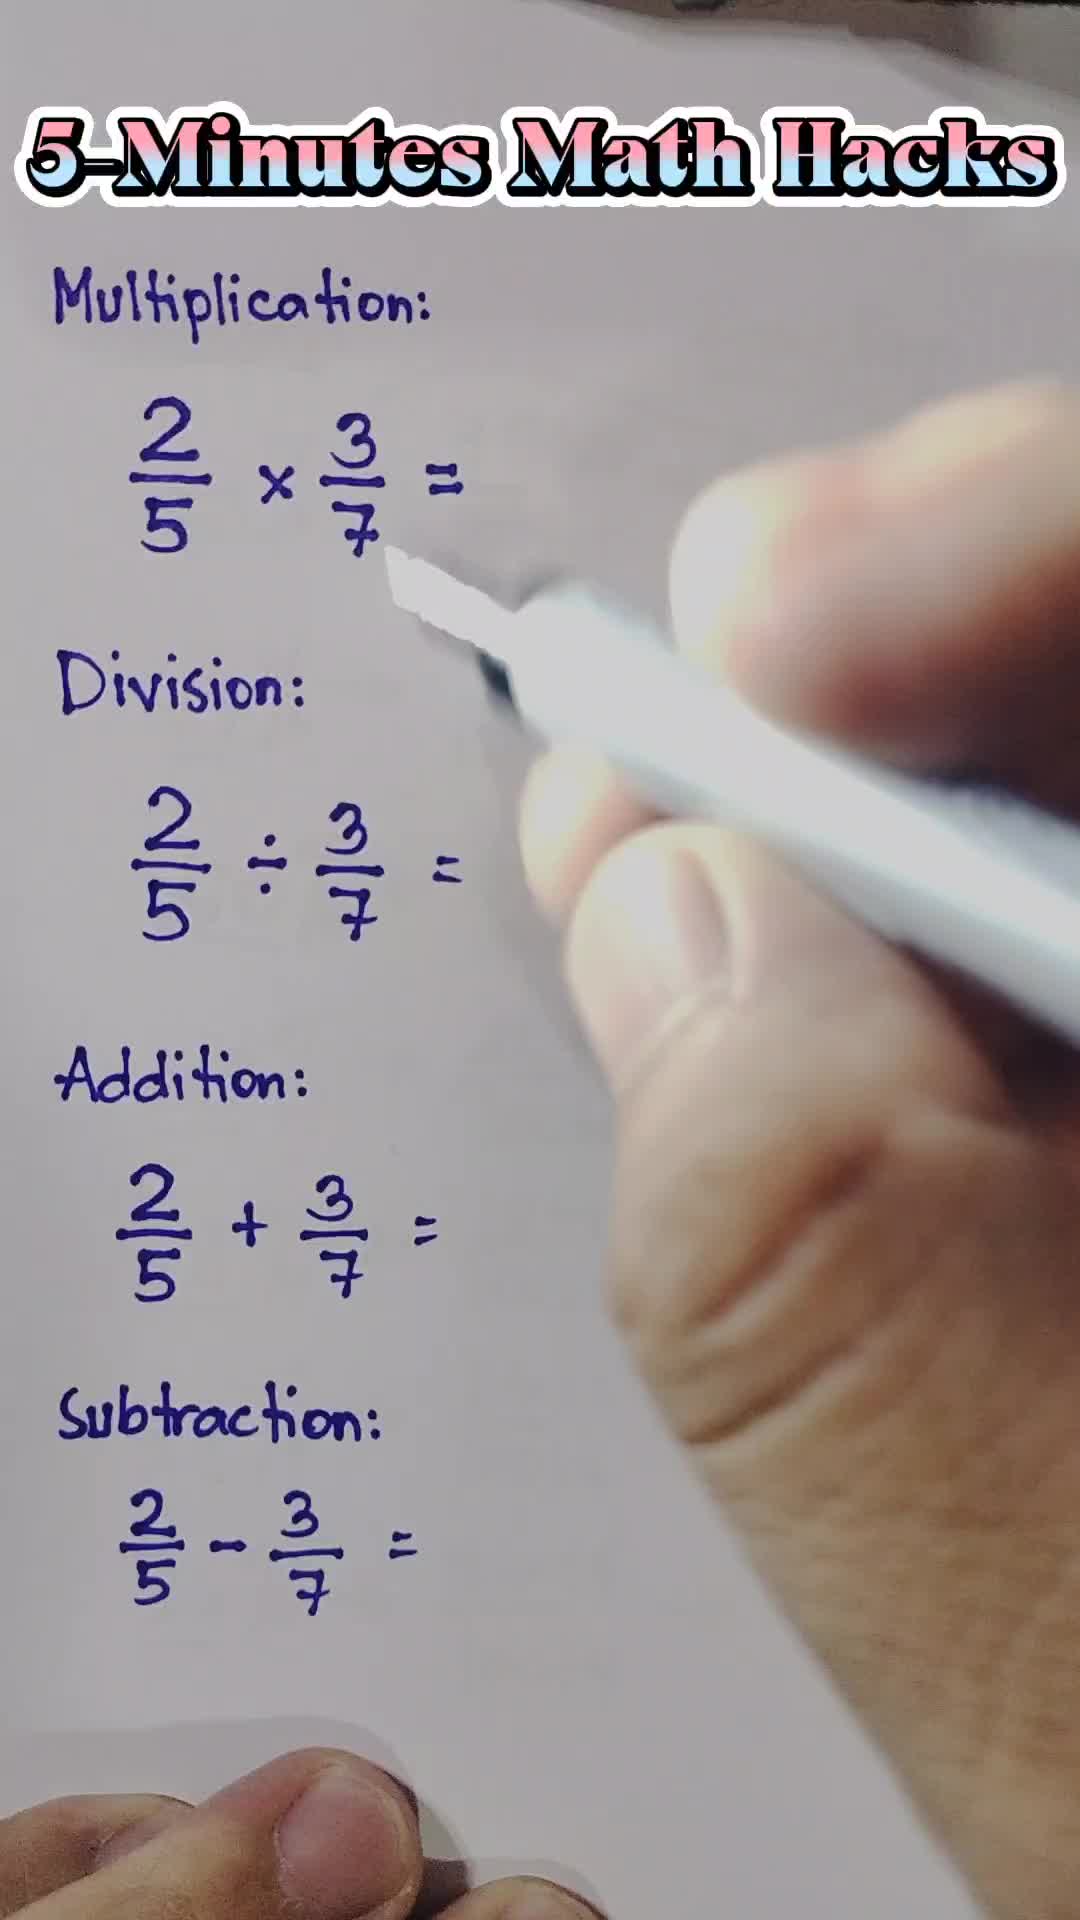 5-Minutes Math Hacks
Multiplication:
2/5 × 3/7 =
Division:
2/5 ÷ 3/7 =
Addition:
2/5 + 3/7 =
Subtraction:
2/5 - 3/7 =